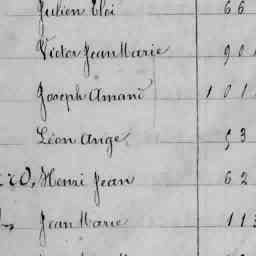 Julien Eloi 66
Victor Jean Marie 90
Joseph Amani 101
Léon Ange 53
Henri Jean 62
Jean Marie 113